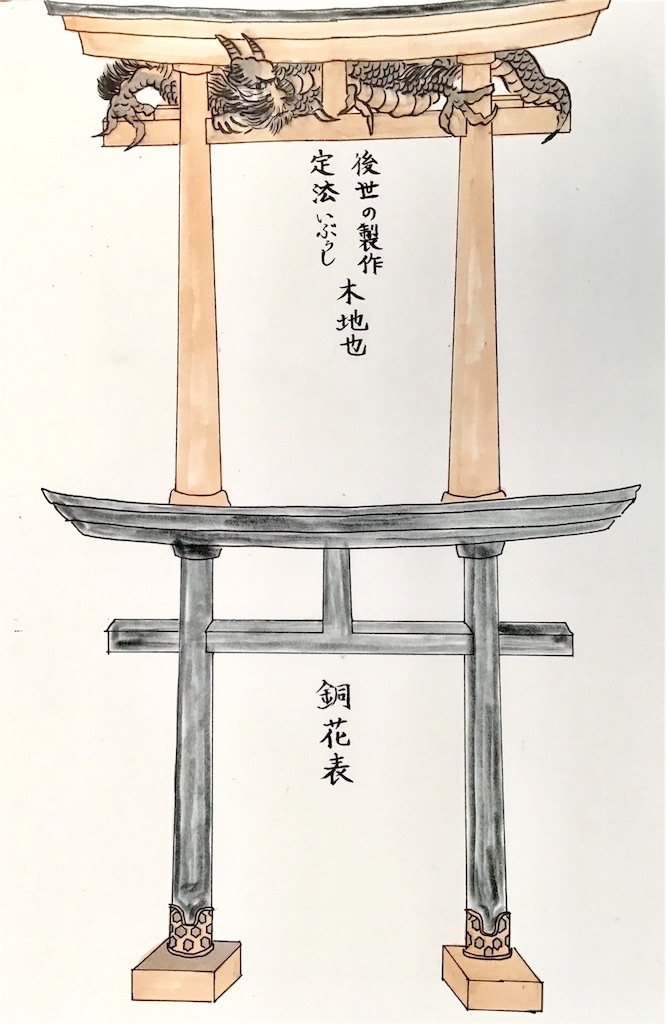 後世の製作
定法いぶかし
木地也
銅花表